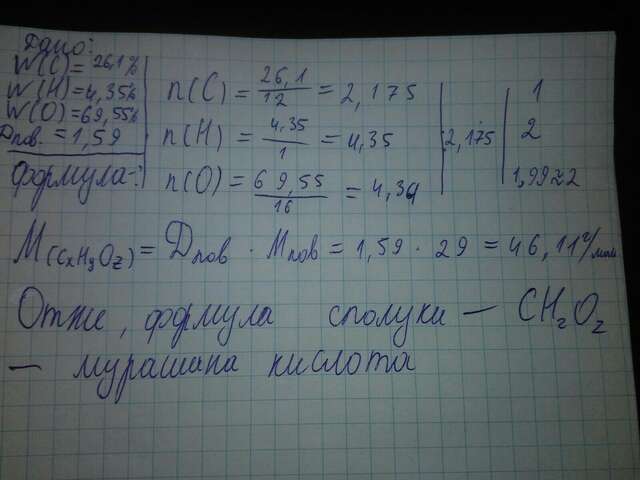 Дано:
W(C)= 26,1%
W(H)= 4,35%
W(O)= 69,55%
Dпов. = 1,59
Формула-?
n(C) = 26,1/12 = 2,175
n(H) = 4,35/1 = 4,35
n(O) = 69,55/16 = 4,34
2,175
1
2
1,99≈2
M(CxHyOz) = Dпов · Mпов = 1,59 · 29 = 46,11 г/моль
Отже, формула сполуки — CH2O2
— мурашина кислота